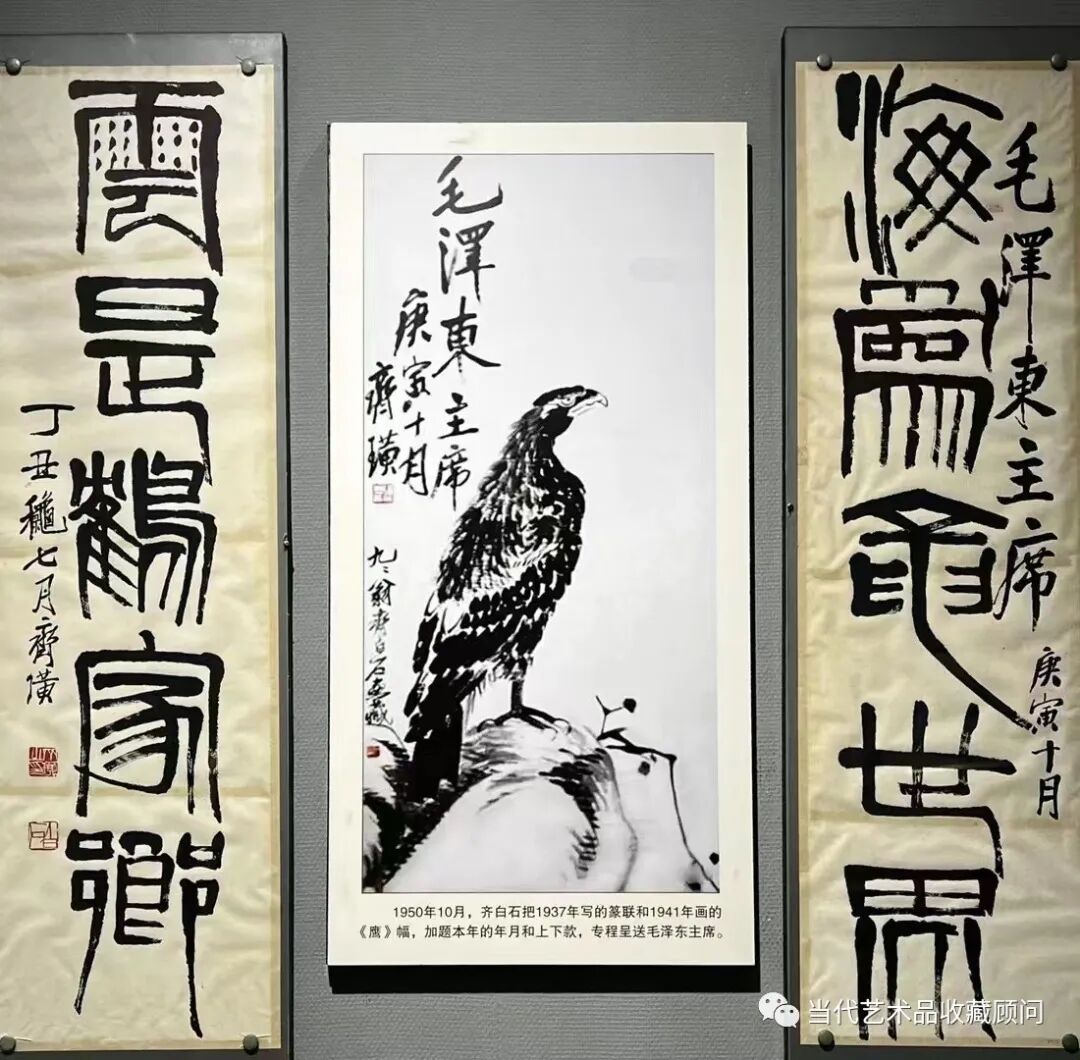 海為龍世界
毛澤東主席
庚寅十月
毛澤東主席
庚寅十月
齊璜
九〻翁齊白石畫藏
1950年10月，齐白石把1937年写的篆联和1941年画的
《鹰》幅，加题本年的年月和上下款，专程呈送毛泽东主席。
雲是鶴家鄉
丁丑穐七月齊璜
当代艺术品收藏顾问